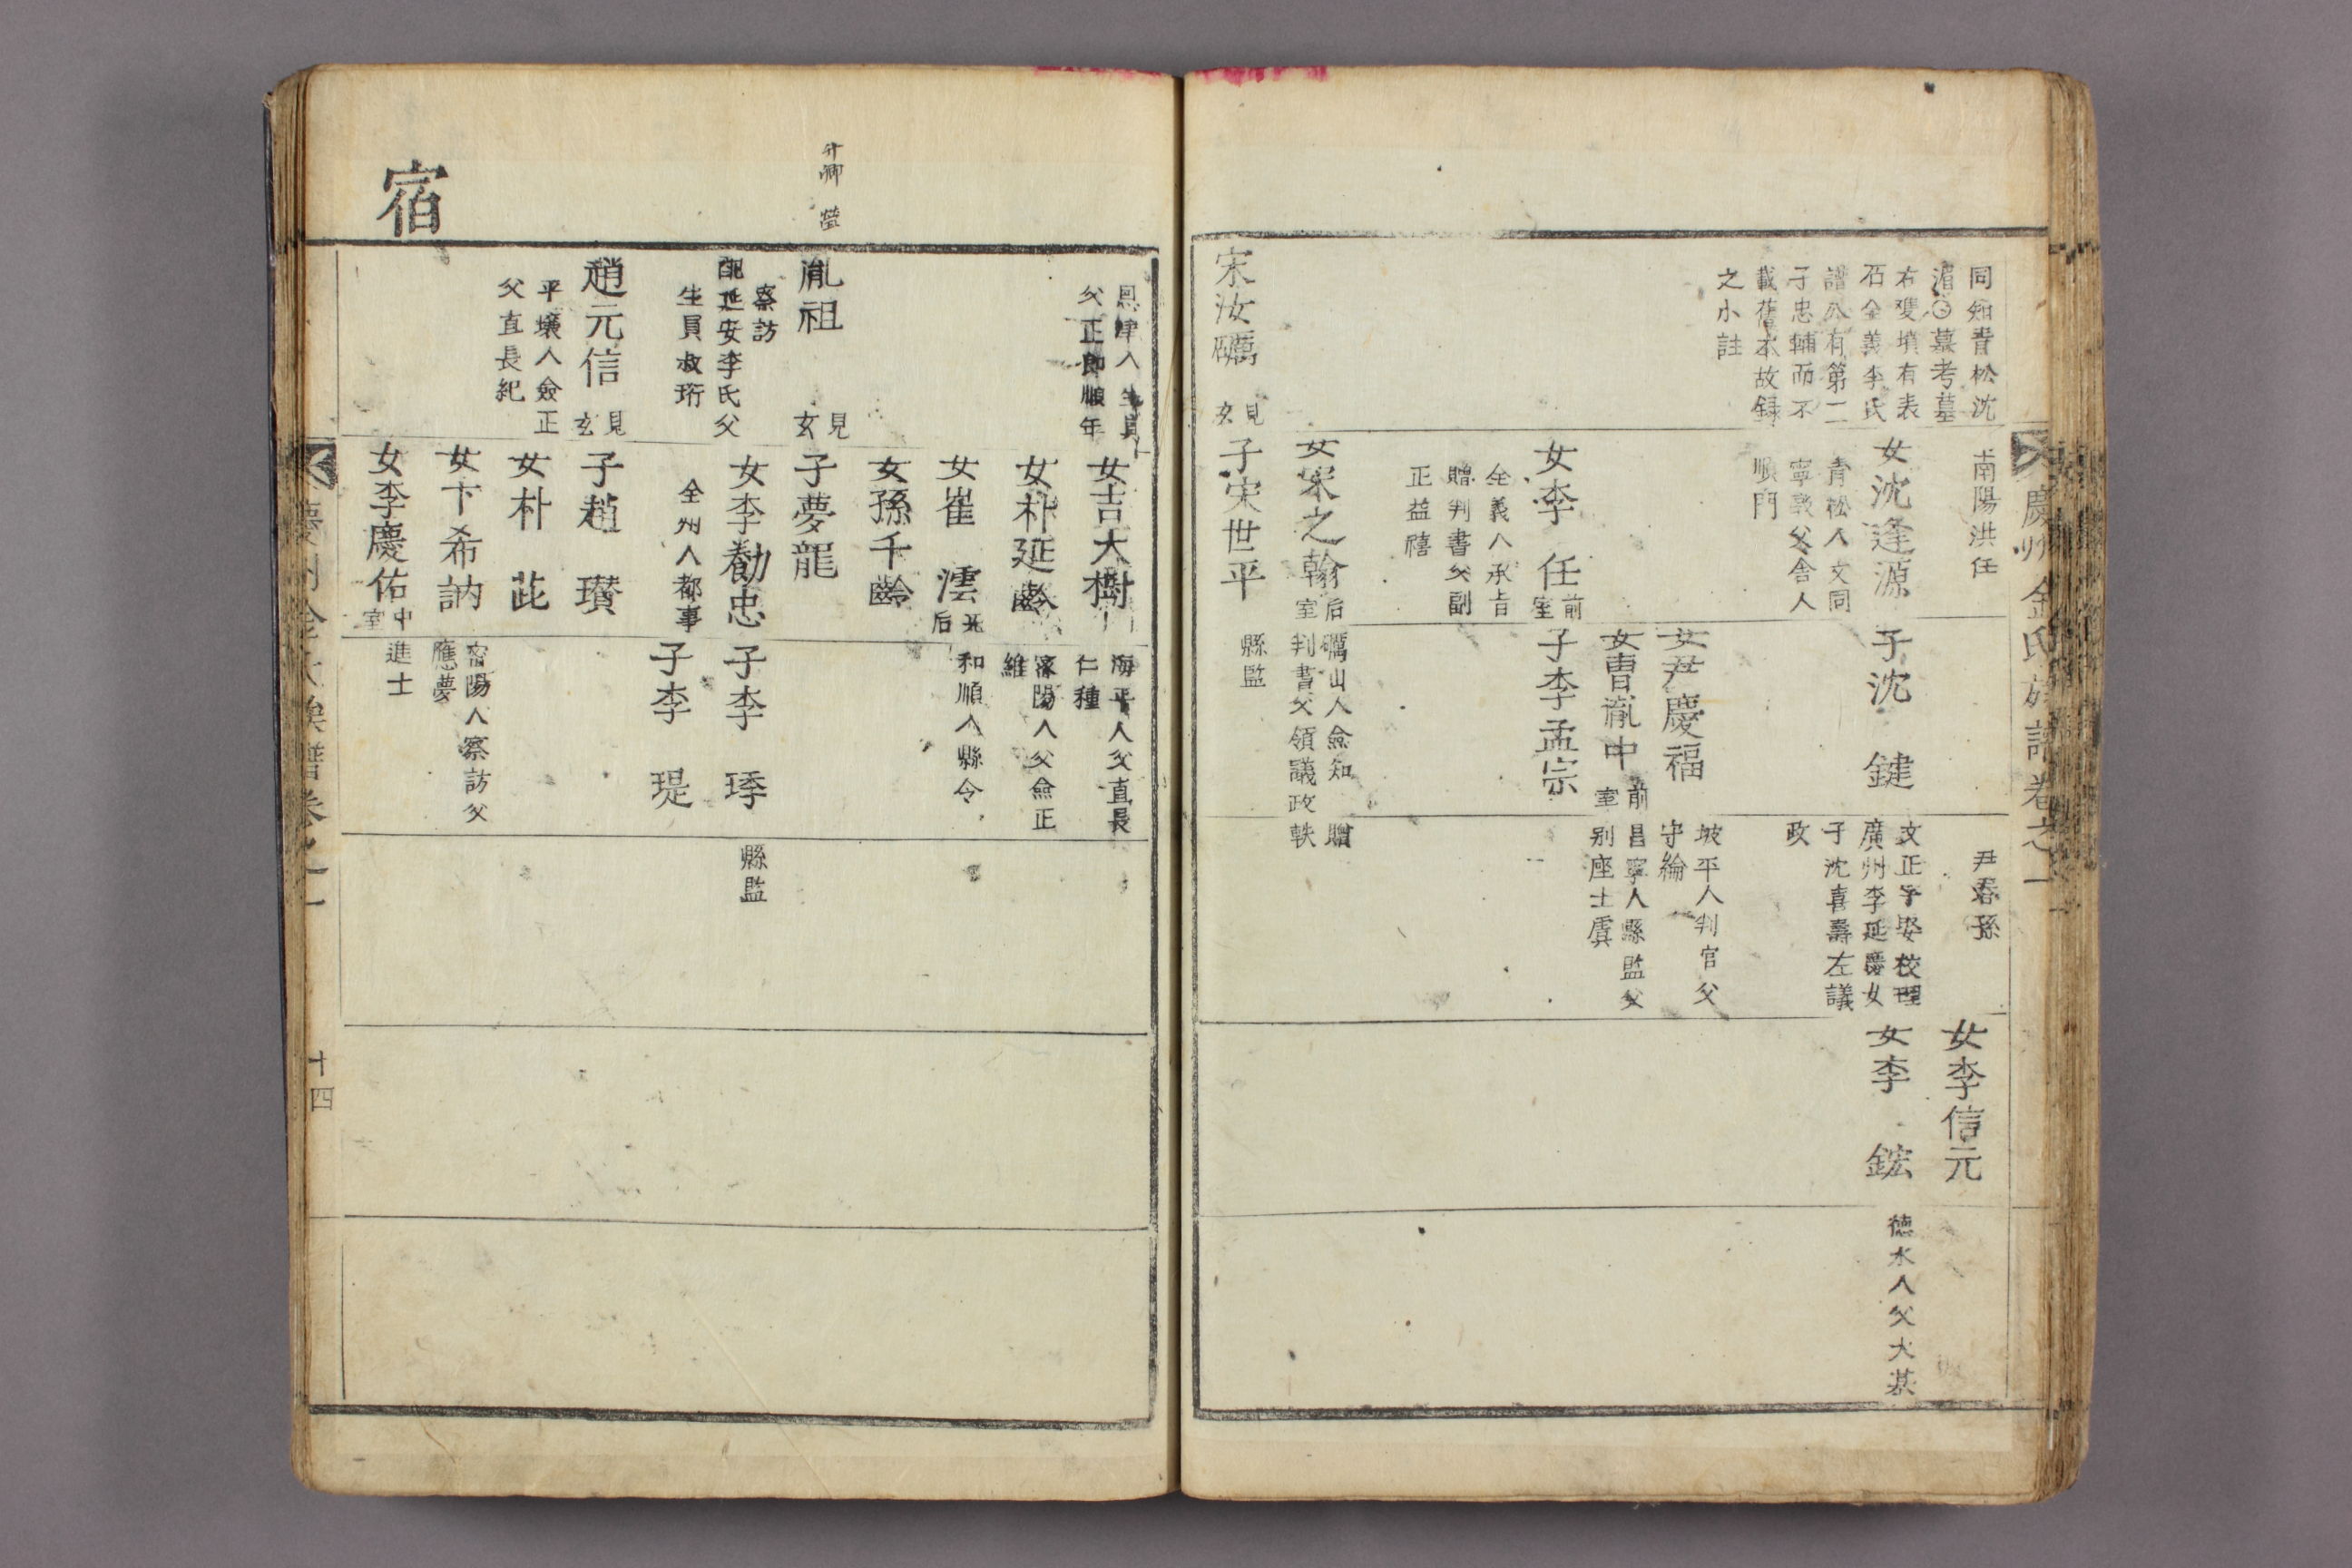 慶州金氏族譜卷之一
同知青松沈
湄〇墓考墓
右雙墳有表
石全義李氏
譜公有第二
子忠輔而不
載舊本故録
之小註
宋汝礪
見
玄
南陽洪任
女沈逢源
青松人文同
寧敦父舍人
順門
女李 任
前
室
全義人承旨
贈判書父副
正益禧
女宋之翰
后
室
子宋世平
子沈 鍵
女尹慶福
女曺胤中
前
室
子李孟宗
礪山人僉知 贈
判書父領議政軼
縣監
尹春孫
文正字娶校理
廣州李延慶女
子沈喜壽左議
政
坡平人判官父
守綸
昌寧人縣監父
别座士虞
女李信元
女李 鋐
德水人父大基
宿
恩津人生員
父正郎順年
胤祖
見
玄
察訪
配延安李氏父
生員叔珩
趙元信
見
玄
平壤人僉正
父直長紀
女吉大樹
女朴延齡
女崔 澐
后
女孫千齡
子夢龍
女李勸忠
全州人都事
子趙 瓚
女朴 茈
女卞希訥
女李慶佑
中
室
海平人父直長
仁種
密陽人父僉正
維
和順人縣令
子李 琈
子李 瑅
密陽人察訪父
應夢
進士
縣監
慶州金氏族譜卷之一
十四